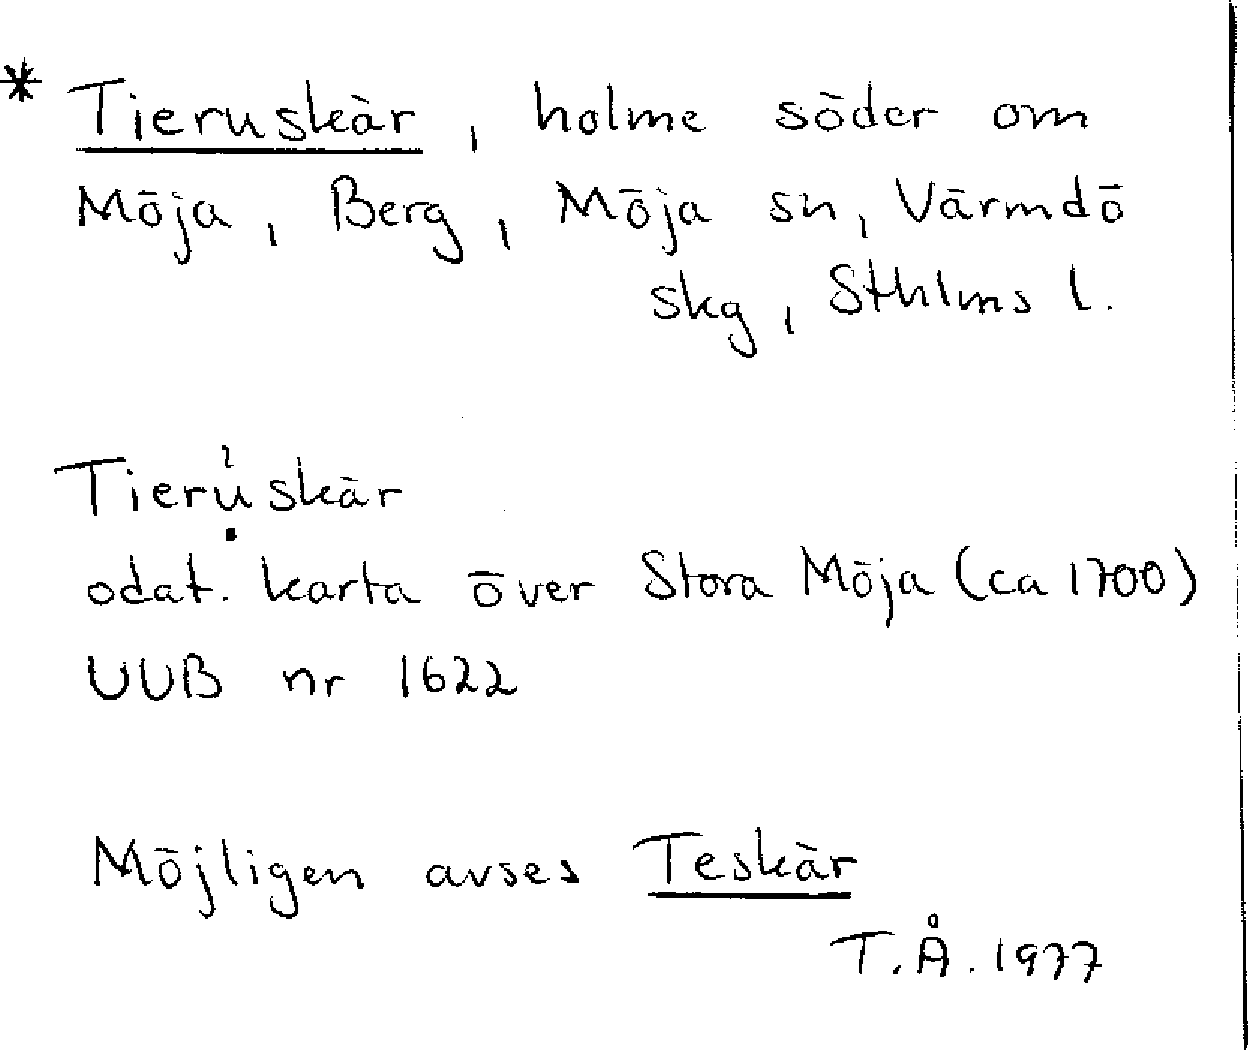 * Tieruskär, holme söder om
Möja, Berg, Möja sn, Värmdö
skg, Sthlms l.
Tieruskär
odat. karta över Stora Möja (ca 1700)
UUB nr 1622
Möjligen avses Teskär
T.Å. 1977